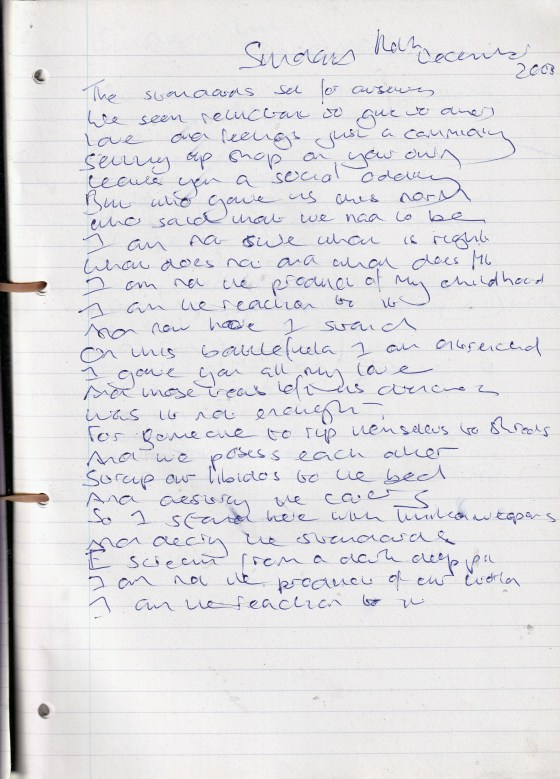 Standards
December
2003
The standards set for ourselves
We seem reluctant to give to others
Love and feelings just a commodity
Setting up shop on your own
Leaves you a social oddity
But who gave us this norm
Who said what we had to be
I am not sure what is right
What does not and what does fit
I am not the product of my childhood
I am the reaction to it
And now here I stand
On this battlefield I am
I gave you all my love
And those years left us
Was it not enough?
For someone to rip themselves to shreds
And we possess each other
Strap our libidos to the bed
And destroy the covers
So I stand here with limited weapons
And decry the standards
I scream from a dark deep pit
I am not the product of our world
I am the reaction to it